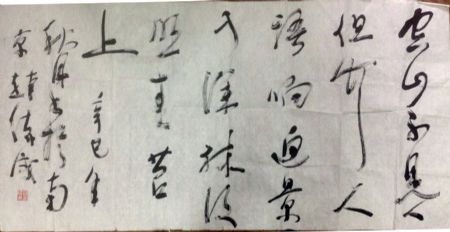 空山不見人
但闻人
語响返景
入深林復
照青苔
上 辛巳年
秋月書於南
京